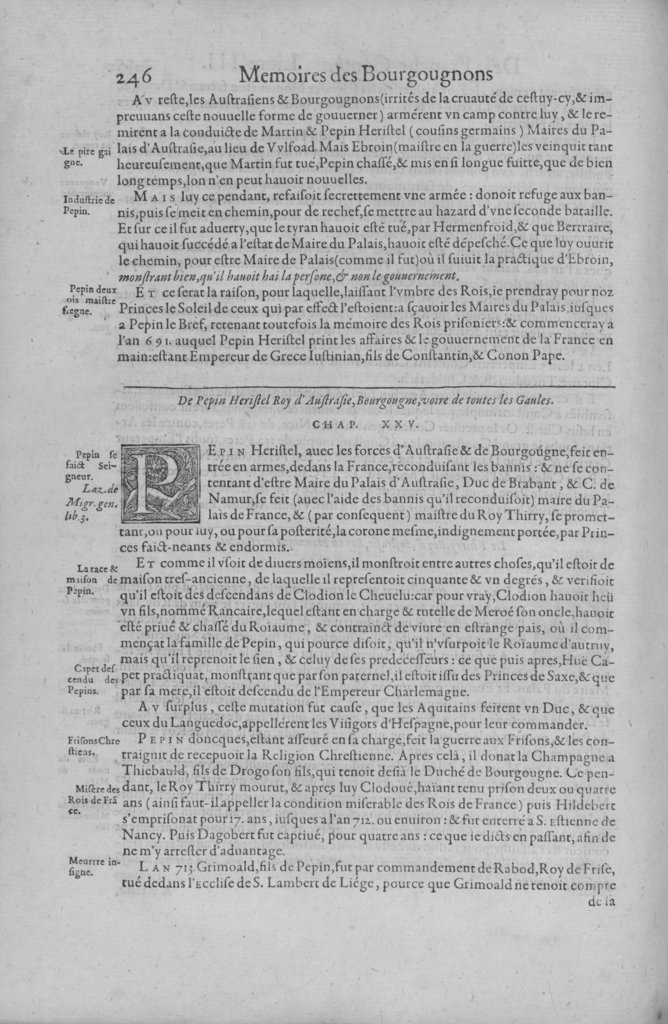 246 Memoires des Bourgougnons
AV reste,les Austrasiens & Bourgougnons(irrités de la cruauté de cestuy-cy,& im-
preuuans ceste nouuelle forme de gouuerner) armérent vn camp contre luy, & le re-
mirent a la conduicte de Martin & Pepin Heristel (cousins germains) Maires du Pa-
Le pire gai
gne.
lais d'Austrasie,au lieu de Vvlfoad. Mais Ebroin(maistre en la guerre)les veinquit tant
heureusement,que Martin fut tue,Pepin chassé,& mis en si longue fuitte,que de bien
long temps,lon n'en peut hauoir nouuelles.
Industrie de
Pepin.
MAIS luy ce pendant, refaisoit secrettement vne armée : donoit refuge aux ban-
nis,puis se meit en chemin,pour de rechef,se mettre au hazard d'vne seconde bataille.
Et sur ce il fut aduerty,que le tyran hauoit esté tué,par Hermenfroid,& que Bertraire,
qui hauoit succédé a l'estat de Maire du Palais,hauoit esté dépesché.Ce que luy ouurit
le chemin, pour estre Maire de Palais(comme il fut)où il suiuit la practique d'Ebroin,
monstrant bien,qu'il hauoit hai la persone,& non le gouuernement.
Pepin deux
ois maistre
siegne.
ET ce sera la raison, pour laquelle,laissant l'vmbre des Rois,ie prendray pour noz
Princes le Soleil de ceux qui par effect l'estoient:a sçauoir les Maires du Palais,iusques
a Pepin le Bref, retenant toutefois la mémoire des Rois prisoniers:& commenceray a
l'an 691. auquel Pepin Heristel print les affaires & le gouuernement de la France en
main:estant Empereur de Grece Iustinian,fils de Constantin,& Conon Pape.
De Pepin Heristel Roy d'Austrasie,Bourgougne,voire de toutes les Gaules.
CHAP. XXV.
Pepin se
faict Sei-
gneur.
Laz.de
Migr.gen.
lib.3.
PEPIN Heristel, auec les forces d'Austrasie & de Bourgougne,feit en-
trée en armes,dedans la France,reconduisant les bannis : & ne se con-
tentant d'estre Maire du Palais d'Austrasie, Duc de Brabant, & C. de
Namur,se feit (auec l'aide des bannis qu'il reconduisoit) maire du Pa-
lais de France,& (par consequent) maistre du Roy Thirry, se promet-
tant,ou pour luy, ou pour sa posterité,la corone mesme,indignement portée,par Prin-
ces faict-neants & endormis.
La race &
maison de
Pepin.
ET comme il vsoit de diuers moïens,il monstroit entre autres choses,qu'il estoit de
maison tres-ancienne, de laquelle il representoit cinquante & vn degrés, & verifioit
qu'il estoit des descendans de Clodion le Cheuelu:car pour vray,Clodion hauoit heü
vn fils,nommé Rancaire,lequel estant en charge & tutelle de Meroé son oncle,hauoit
esté priué & chassé du Roiaume, & contrainct de viure en estrange pais, où il com-
mençat la famille de Pepin, qui pource disoit, qu'il n'vsurpoit le Roiaume d'autruy,
mais qu'il reprenoit le sien, & celuy de ses predecesseurs : ce que puis apres,Hue Ca-
Capet des
cendu des
Pepins.
pet practiquat, monstrant que par son paternel,il estoit issu des Princes de Saxe,& que
par sa mere,il estoit descendu de l'Empereur Charlemagne.
AV surplus, ceste mutation fut cause, que les Aquitains feirent vn Duc, & que
ceux du Languedoc,appellérent les Visigots d'Hespagne,pour leur commander.
Frisons Chre
stiens.
PEPIN doncques,estant asseuré en sa charge,feit la guerre aux Frisons,& les con-
traignit de recepuoir la Religion Chrestienne. Apres celà, il donat la Champagne a
Thiebauld, fils de Drogo son fils,qui tenoit desià le Duché de Bourgougne. Ce pen-
Misère des
Rois de Frã
ce.
dant, le Roy Thirry mourut, & apres luy Clodoué,haïant tenu prison deux ou quatre
ans (ainsi faut-il appeller la condition miserable des Rois de France) puis Hildebert
s'emprisonat pour 17. ans, iusques a l'an 712. ou enuiron : & fut enterré a S. Estienne de
Nancy. Puis Dagobert fut captiué, pour quatre ans : ce que ie dicts en passant, afin de
ne m'y arrester d'aduantage.
Meurtre in-
signe.
LAN 713. Grimoald,fils de Pepin,fut par commandement de Rabod,Roy de Frise,
tué dedans l'Ecclise de S. Lambert de Liége, pource que Grimoald ne tenoit compte
de la